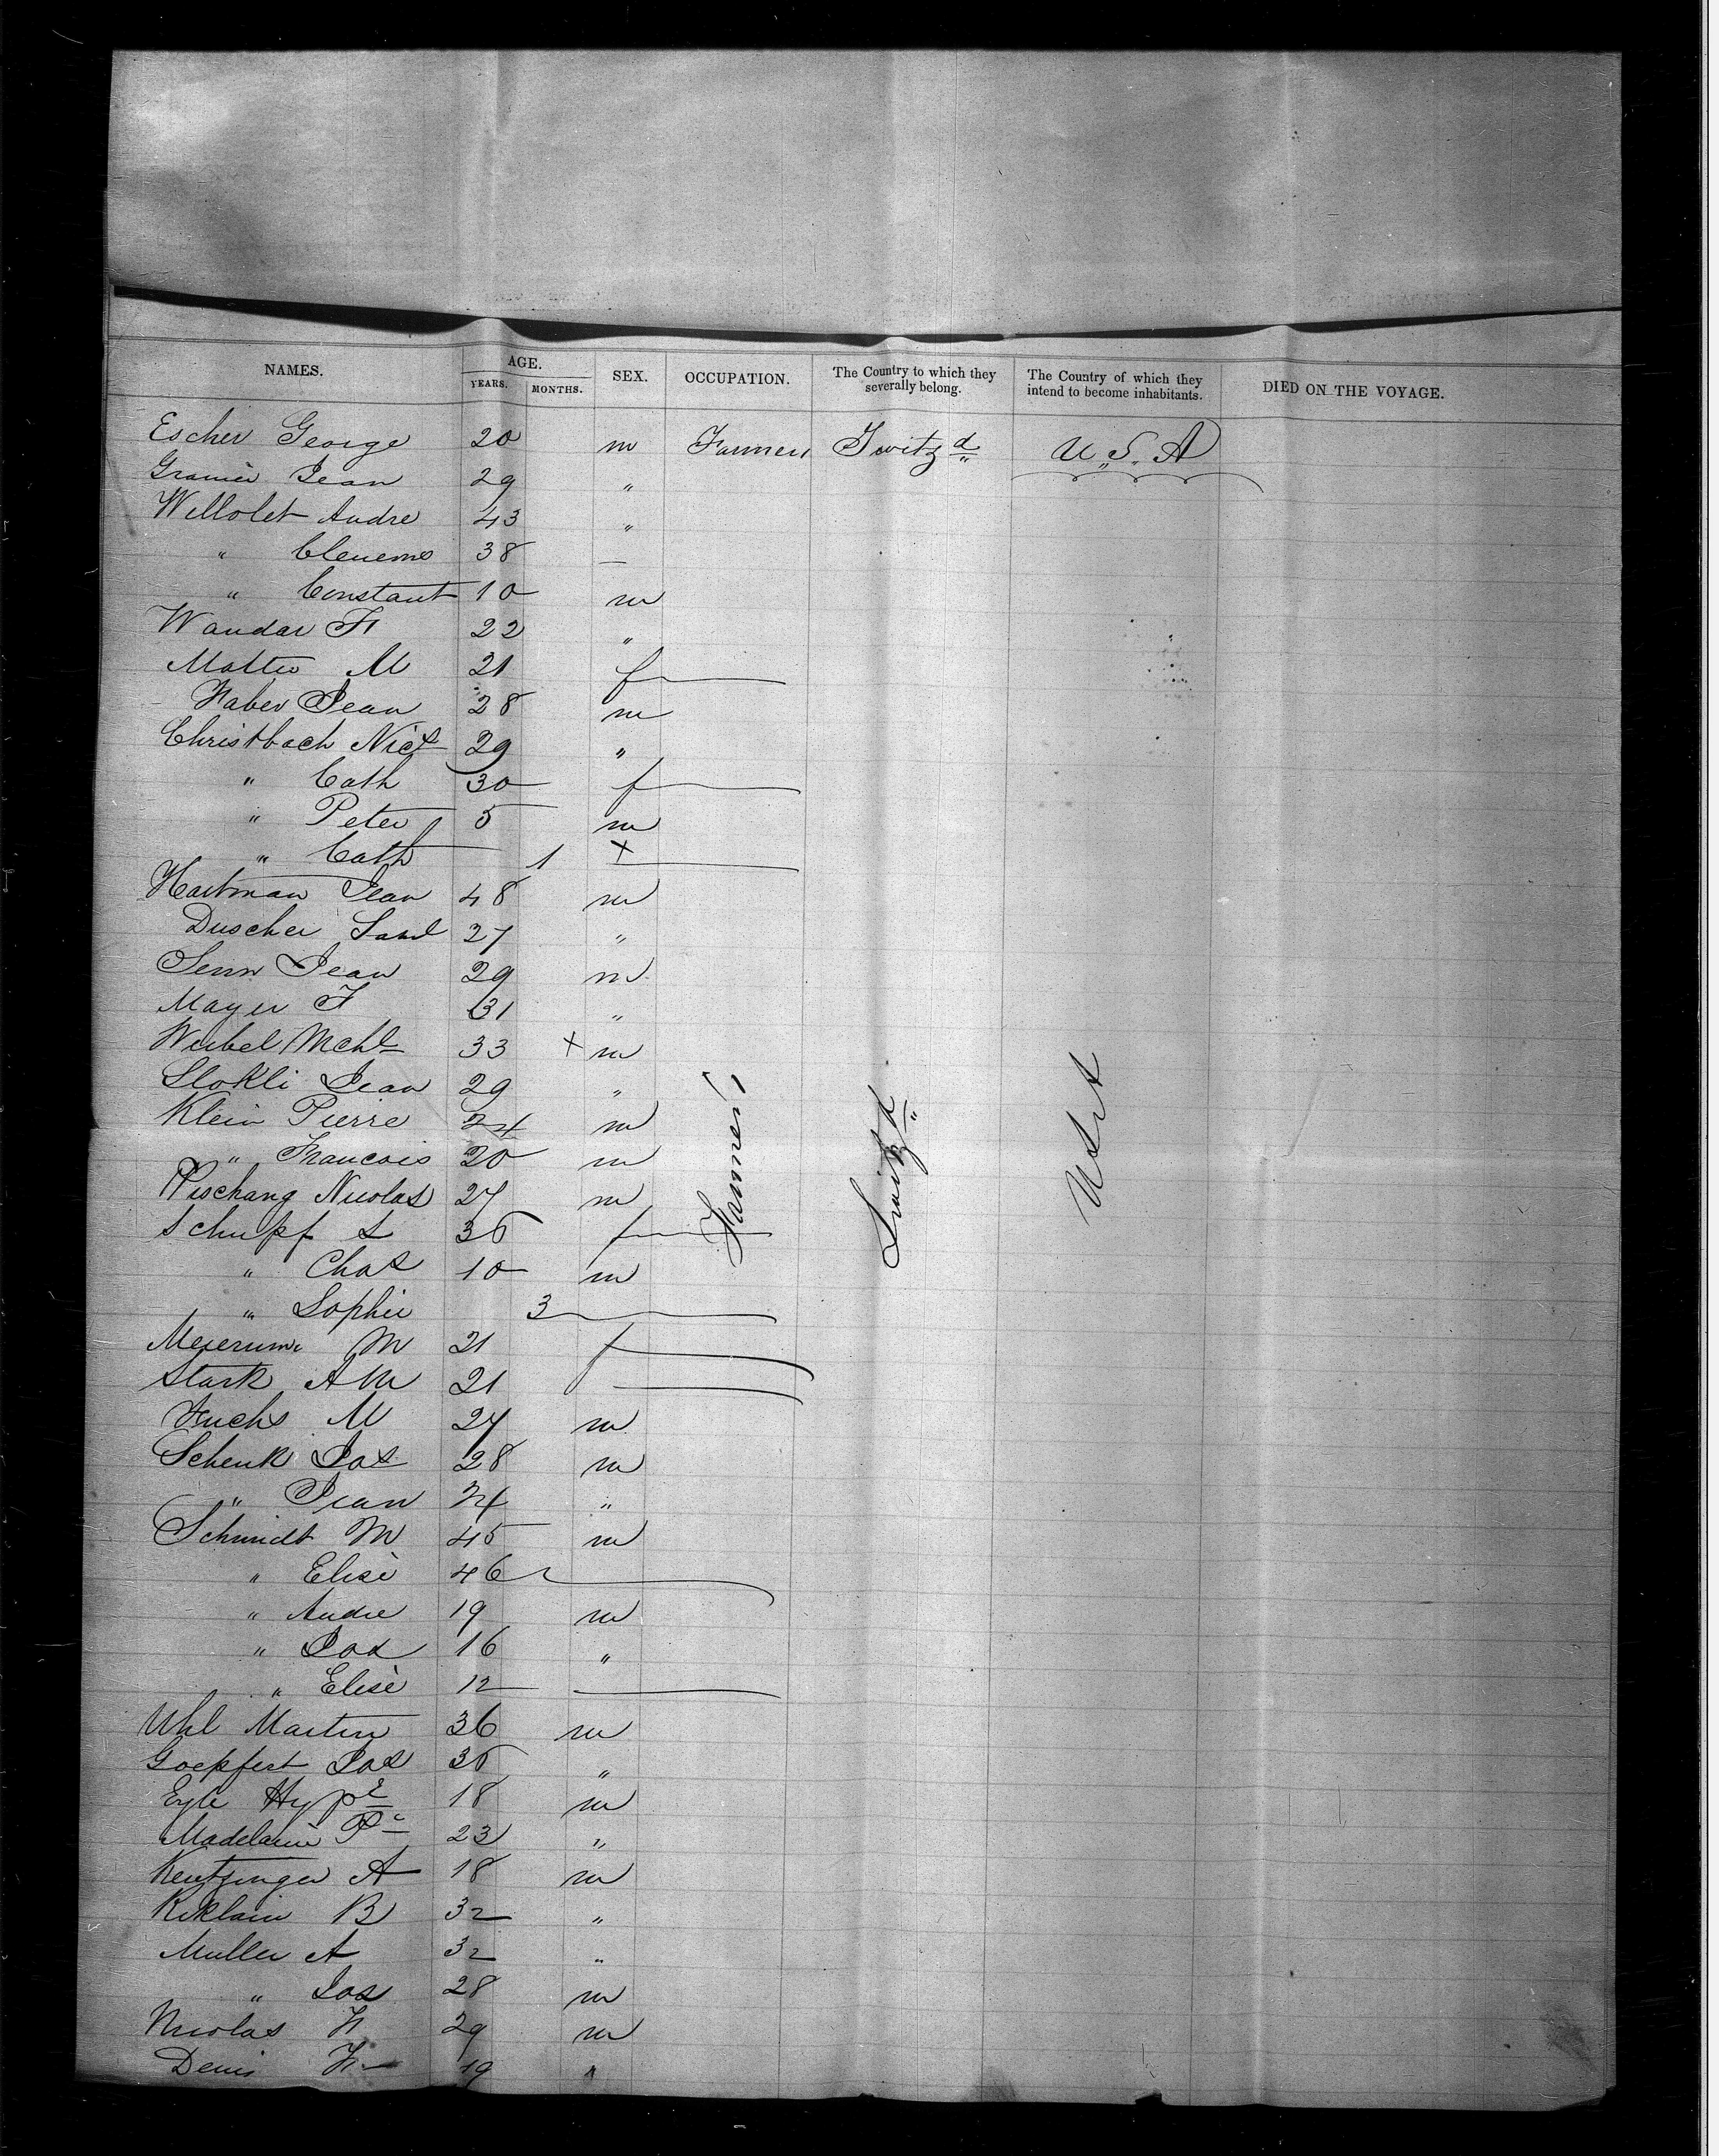 NAMES. AGE. YEARS. MONTHS. SEX. OCCUPATION. The Country to which they severally belong. The Country of which they intend to become inhabitants. DIED ON THE VOYAGE.
Escher George 20 m Farmer Switz d U.S.A
Jean 29 "
Willolet Andre 43 "
" 38 —
" Constant 10 m
Wandar Fr 22 "
M 21 f
Faber Jean 28 m
Christbach Nics 29 "
" Cath 30 f
" Peter 5 m
" Cath 1 +
Hartman Jean 48 m
Duscher Saml 27 "
Senn Jean 29 m
Mayer F 31 "
Weibel Mchl 33 + m
Slokli Jean 29 "
Klein Pierre 24 m
" Francois 20 m
Pischang Nicolas 27 m
Schupf S 35 f
" Chas 10 m
" Sophie 3
M 21 f
Stark AM 21
Fuchs M 24 m
Schenk Jos 28 m
" Jean 24 "
Schmidt M 45 m
" Elise 46
" Andre 19 m
" Jos 16 "
" Elisè 12
Uhl Martin 36 m
Goepfert Jos 35 "
Eyle Hypte 18 m
Madelaine Pre 23 "
Kentzinger A 18 m
Riklain B 32 "
Muller A 32 "
" Jos 28 m
Nicolas Fr 29 m
Denis Fr 19 "
Farmers
Switz d
U S A